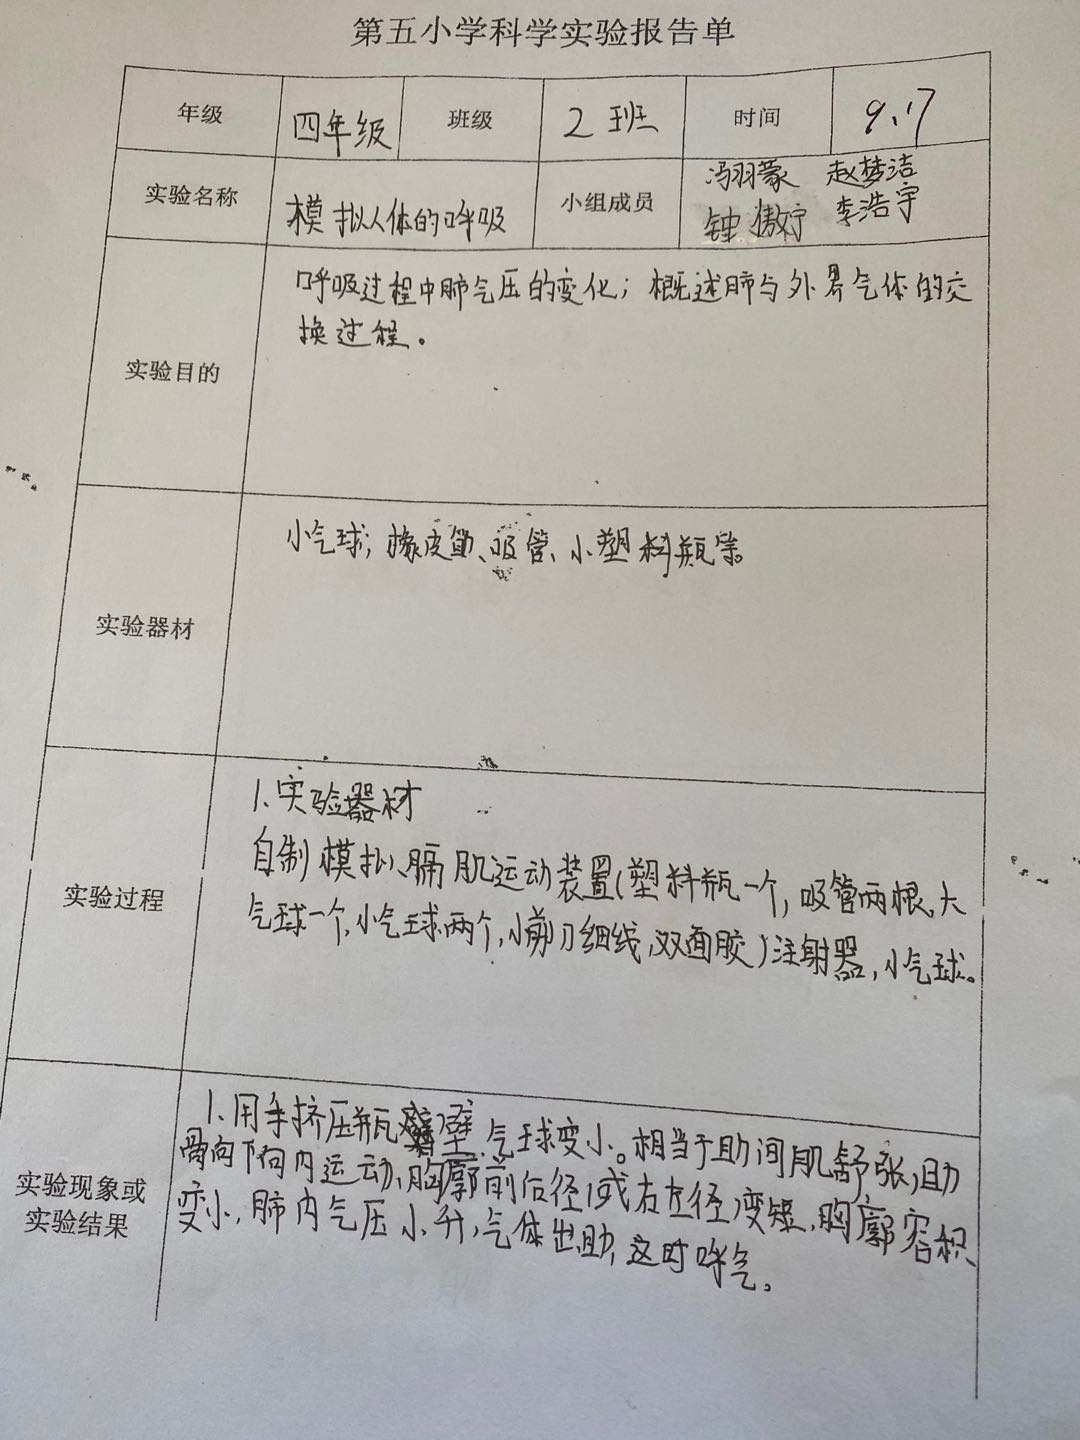 第五小学科学实验报告单
年级 四年级 班级 2班 时间 9.17
实验名称 模拟人体的呼吸 小组成员 冯羽蒙 赵梦洁
钟 李浩宇
实验目的
呼吸过程中肺气压的变化；概述肺与外界气体的交
换过程。
实验器材
小气球；橡皮筋、吸管、小塑料瓶等。
实验过程
1、实验器材
自制模拟、膈肌运动装置(塑料瓶一个，吸管两根，大
气球一个，小气球两个，小剪刀细线，双面胶)注射器，小气球。
实验现象或
实验结果
1、用手挤压瓶壁，气球变小。相当于肋间肌舒张，肋
骨向下向内运动，胸廓前后径或右左径变短，胸廓容积
变小，肺内气压小升，气体出肋，这时呼气。